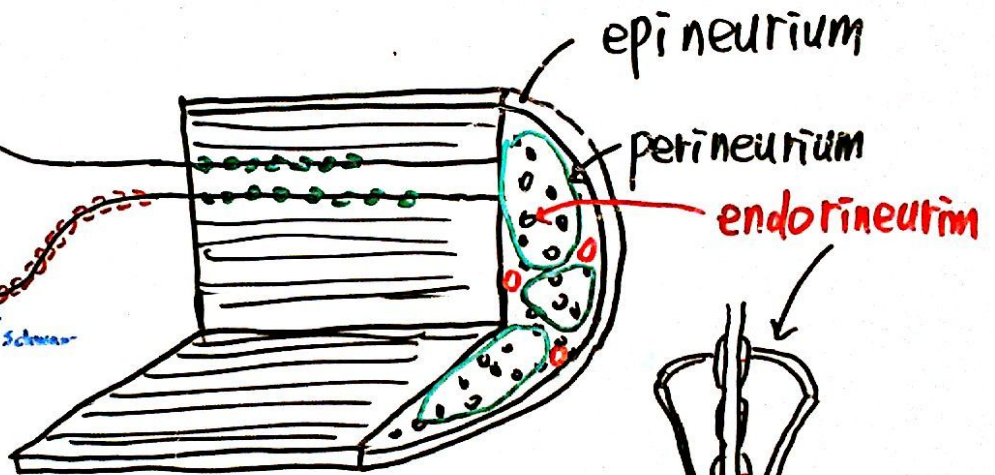 epineurium
perineurium
endorineurim